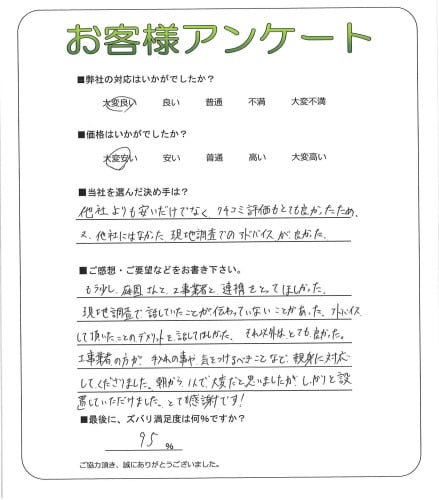 お客様アンケート
■弊社の対応はいかがでしたか?
大変良い 良い 普通 不満 大変不満
■価格はいかがでしたか?
大変安い 安い 普通 高い 大変高い
■当社を選んだ決め手は?
他社よりも安いだけでなく、クチコミ評価もとても良かったため、
又、他社にはなかった現地調査でのアドバイスが良かった。
■ご感想・ご要望などをお書き下さい。
もう少し、庭園さんと工事業者と連携をとってほしかった。
現地調査で話していたことが伝わっていないことがあった。アドバイス
して頂いたことのデメリットを話してほしかった。それ以外はとても良かった。
工事業者の方が、手入れの事や気をつけるべきことなど、親身に対応
してくださりました。朝から1人で大変だと思いましたが、しっかりと設
置していただけました。とても感謝です!
■最後に、ズバリ満足度は何%ですか?
95 %
ご協力頂き、誠にありがとうございました。